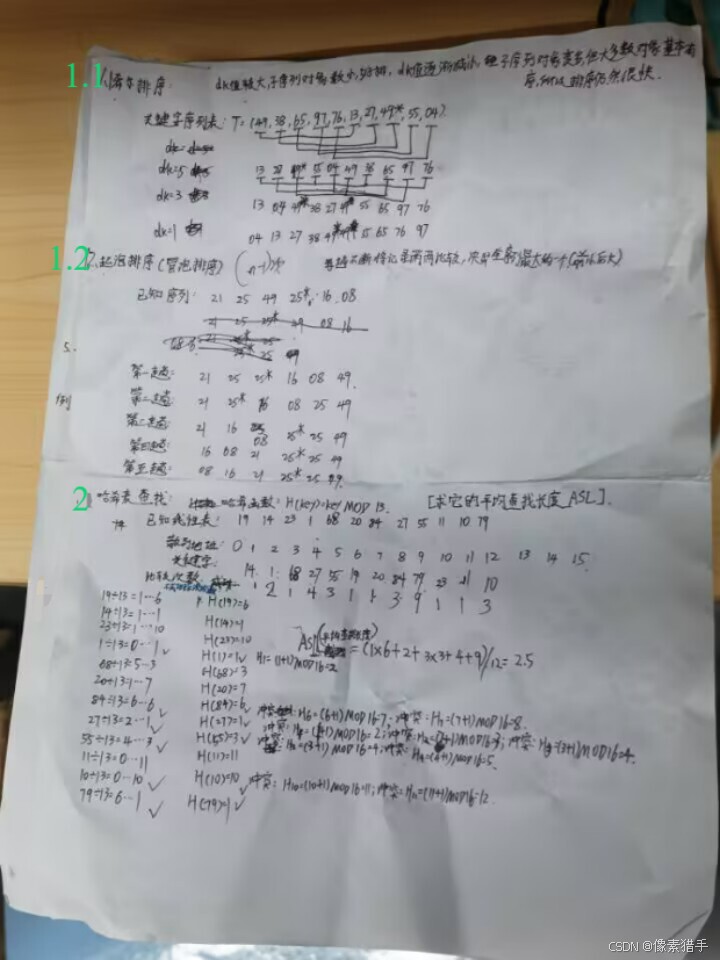 1.1 希尔排序: dk值较大,子序列对象数少,好排, dk值逐渐减小,但子序列对象变多,但大多数对象基本有
序,所以排序仍然很快.
关键字序列表: T=(49, 38, 65, 97, 76, 13, 27, 49*, 55, 04).
dk=
dk=5 13 27 49* 55 04 49 38 65 97 76
dk=3 13 04 49* 38 27 49 55 65 97 76
dk=1 04 13 27 38 55 65 76 97
1.2 起泡排序(冒泡排序) (n-1)次
已知序列: 21 25 49 25* 16 08
21 25 25* 08 16
5.
第一趟: 21 25 25* 16 08 49
例
第二趟: 21 25* 16 08 25 49
第三趟: 21 16 08 25* 25 49
第四趟: 16 08 21 25* 25 49
第五趟: 08 16 21 25* 25 49.
2 哈希表查找: 哈希函数: H(key)=key MOD 13. [求它的平均查找长度ASL].
已知线性表: 19 14 23 1 68 20 84 27 55 11 10 79
散列地址: 0 1 2 3 4 5 6 7 8 9 10 11 12 13 14 15.
关键字: 14 1 68 27 55 19 20 84 79 23 11 10
比较次数 1 2 1 4 3 1 1 3 9 1 1 3
19÷13=1…6 H(19)=6
14÷13=1…1 H(14)=1
23÷13=1…10 H(23)=10
ASL(平均查找长度) = (1×6+2+3×3+4+9)/12=2.5
1÷13=0…1 ✓ H(1)=1✓ H1=(1+1)MOD16=2
68÷13=5…3 H(68)=3
20÷13=1…7 H(20)=7
84÷13=6…6 ✓ H(84)=6✓ 冲突: H6=(6+1)MOD16=7; 冲突: H7=(7+1)MOD16=8.
27÷13=2…1 ✓ H(27)=1✓ 冲突: (1+1)MOD16=2; 冲突: MOD16=3; 冲突: H3=(3+1)MOD16=4.
55÷13=4…3 ✓ H(55)=3✓ H3=(3+1)MOD16=4; 冲突: H4=(4+1)MOD16=5.
11÷13=0…11 H(11)=11
10÷13=0…10 ✓ H(10)=10✓ 冲突: H10=(10+1)MOD16=11; 冲突: H11=(11+1)MOD16=12.
79÷13=6…1 ✓ H(79)=1✓
CSDN @像素猎手